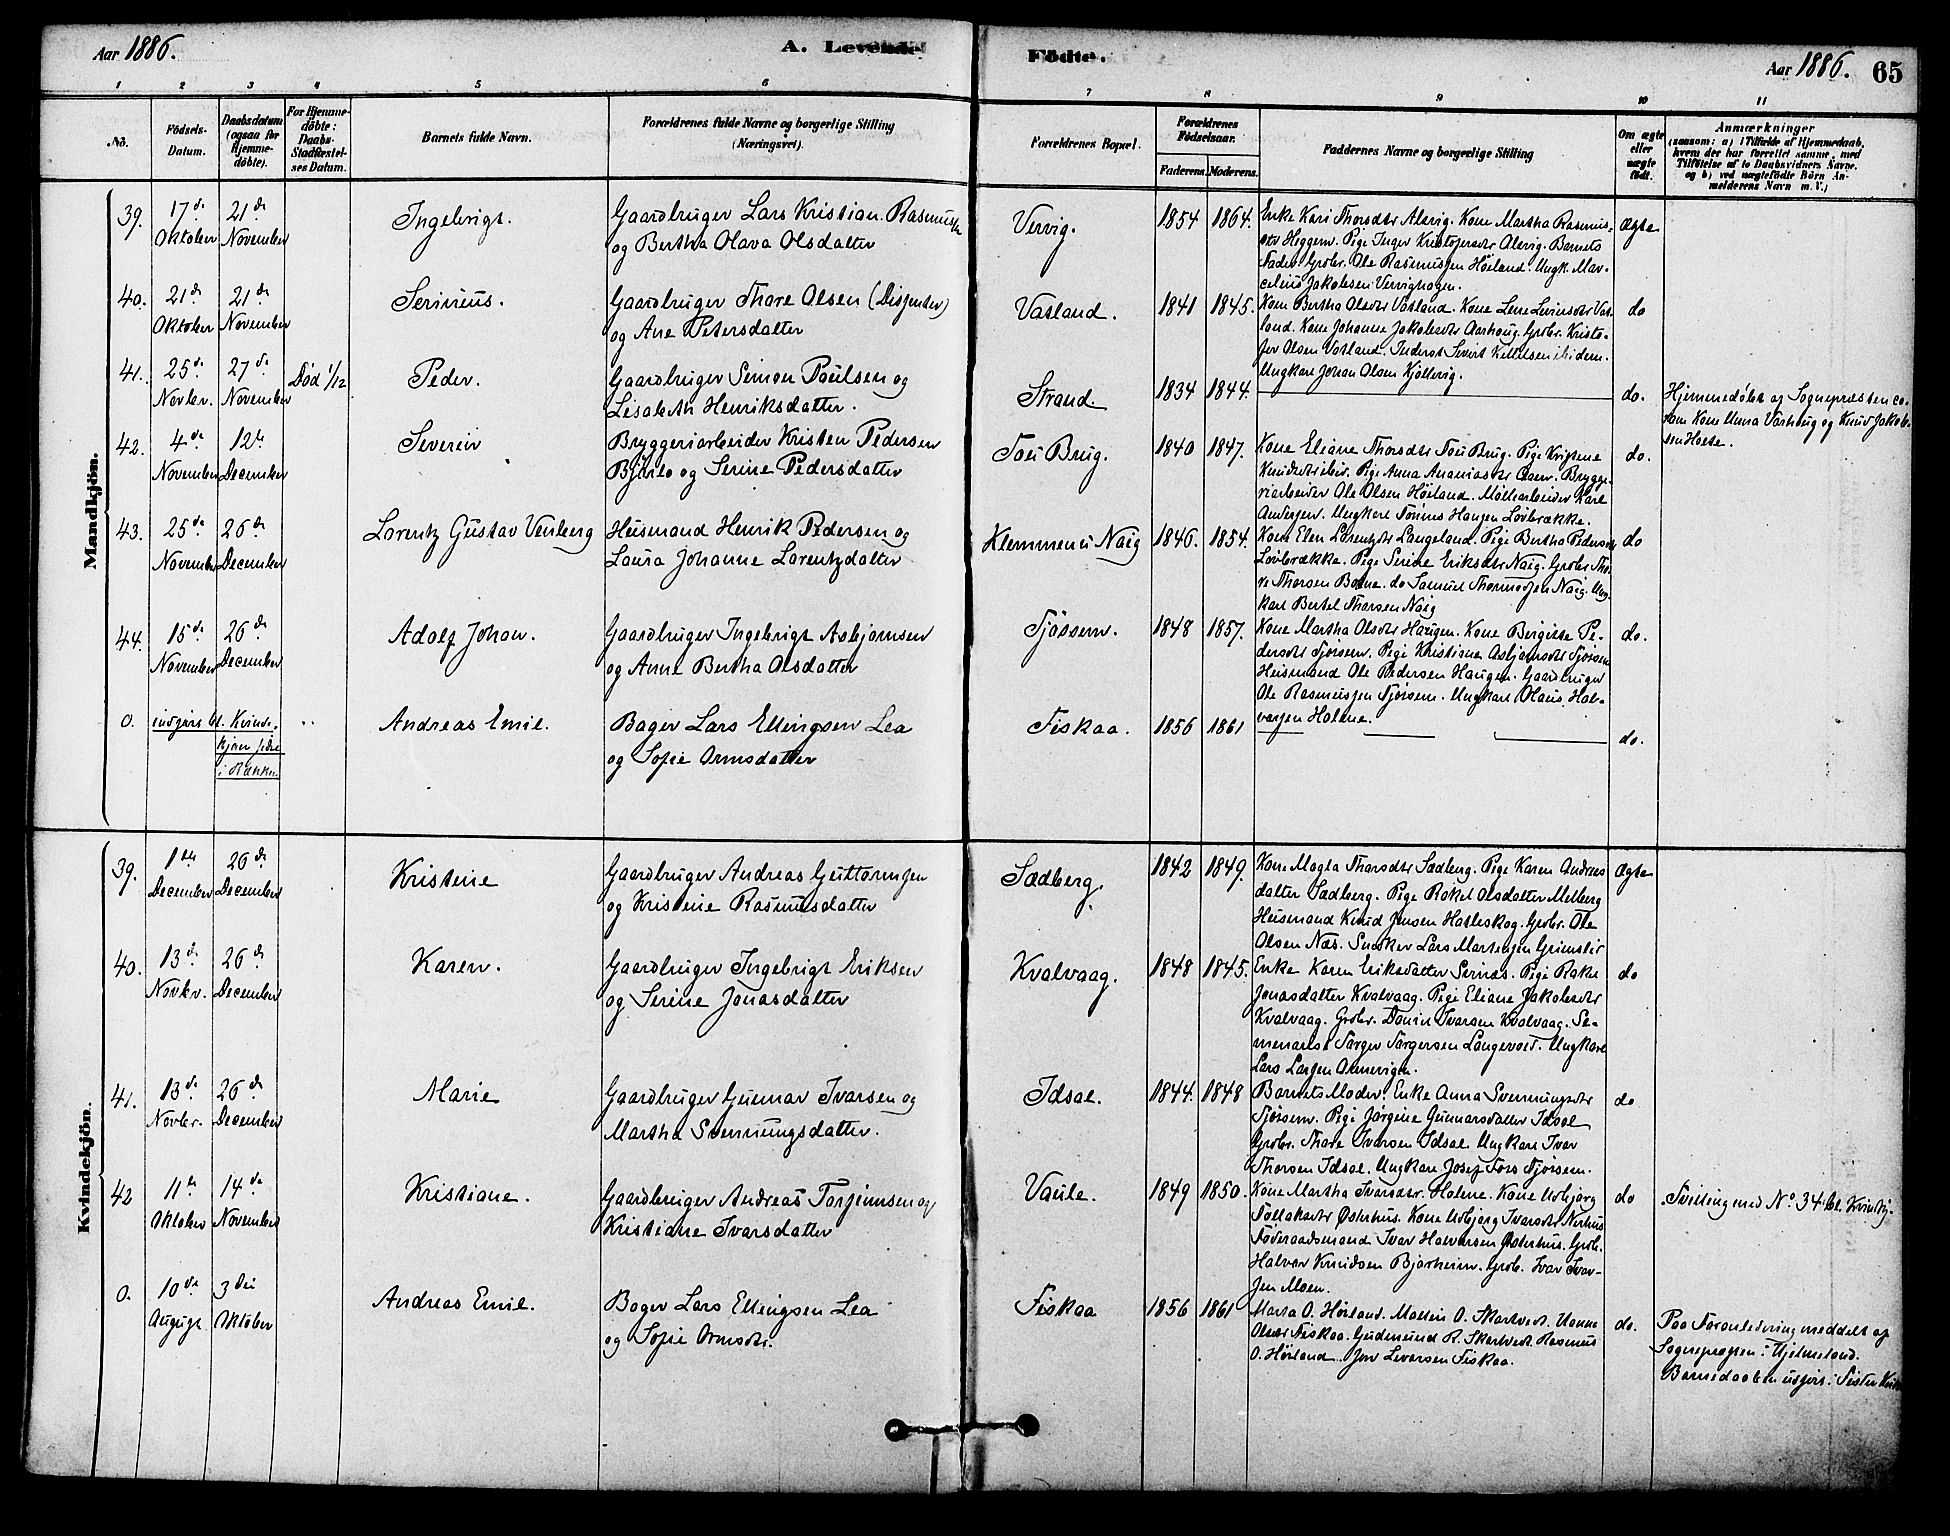 Aar 1886.
A. Levende
Födte.
Aar 1886. 65
1 2 3 4 5 6 7 8 9 10 11
No.
Födsels-
Datum.
Daabsdatum
(ogsaa for
Hjemme-
döbte).
For Hjemme-
döbte:
Daabs-
Stadfæstel-
ses Datum.
Barnets fulde Navn.
Forældrenes fulde Navne og borgerlige Stilling
(Næringsvei).
Forældrenes Bopæl.
Forældrenes
Födselsaar.
Faderens. Moderens.
Faddernes Navne og borgerlige Stilling
Om ægte
eller
uægte
födt.
Anmærkninger
(saasom: a) i Tilfælde af Hjemmedaab,
hvem der har forrettet samme, med
Tilföielse af to Daabsvidners Navne,
og b) ved uægtefödte Börn An-
melderens Navn m. V.)
Mandkjön.
39. 17de Oktober 21de November Ingebrigt.
Gaardbruger Lars Kristian Rasmus
og Bertha Olava Olsdatter
Vervig. 1854 1864.
Enke Kari Thorsdtr Alsvig. Kone Martha Rasmus-
dtr Heggem. Pige Inger Kristofersdtr Alsvig. Barnets
Fader. Grdbr. Ole Rasmussen Höiland. Ungk. Mar-
celius Jakobsen Vervighagen.
Ægte
40. 21de Oktober 21de November Serinius.
Gaardbruger Thore Olsen (Dissenter)
og Ane Petersdatter
Vatland. 1841 1845.
Kone Bertha Olsdtr Vatland. Kone Lene Levinsdtr Vat-
land. Kone Johanne Jakobsdtr Aarhoug. Grdbr. Kristo-
fer Olsen Vatland. Inderst Sivert Kittelsen ibidem.
Ungkarl Johan Olsen Kjöllevig.
do
41. 25de Novbr. 27de November Död 1/12 Peder.
Gaardbruger Simon Poulsen og
Lisabeth Henriksdatter.
Strand. 1834 1844.
do.
Hjemmedöbt af Sognepræsten co-
ram Kone Anna Varhoug og Knud Jakob-
sen Holte.
42. 4de November 12te December Severin
Bryggeriarbeider Kristen Pedersen
Bjhreo og Serine Pedersdatter
Tou Brug. 1840 1847.
Kone Eliane Thorsdtr Tou Brug. Pige Kristine
Knudsdtr ibid. Pige Anna Ananiasdtr Brygge-
riarbeider Ole Olsen Höiland. Möllearbeider Karl
Andersen. Ungkarl Tönnes Hansen Lövbrække.
do.
43. 25de November 26de December Lorentz Gustav Venberg
Huusmand Henrik Pedersen og
Laura Johanne Lorentzdatter
Klemmen u. Naig 1846. 1854.
Kone Elen Larentzdtr Langeland. Pige Bertha Pedersdtr
Lövbrække. Pige Serine Eriksdtr Naig. Grdbr. Tho-
re Thorsen Botne. do Samuel Thormodsen Naig. Ung-
karl Bertel Thorsen Naig
do
44. 15de November 26de December Adolf Johan.
Gaardbruger Ingebrigt Asbjörnsen
og Anne Bertha Olsdatter
Tjössem. 1848 1857.
Kone Martha Olsdtr Haugen. Kone Birgitte Pe-
dersdtr Tjössem. Pige Kristiane Asbjörnsdtr Tjössem
Huusmand Ole Pedersen Haugen. Gaardbruger
Ole Rasmussen Tjössem. Ungkarl Olaus Hal-
vorsen Holene.
do.
0. indförs bl. Kvinde-
kjön sidst
i Rækken
" Andreas Emil.
Bager Lars Ellingsen Lea
og Sofie Ormsdatter
Fiskaa. 1856 1861
do.
Kvindekjön.
39. 1ste December 26de December Kristine
Gaardbruger Andreas Guttormsen
og Kristine Rasmusdatter
Sædberg. 1842 1849.
Kone Magla Thorsdtr Sædberg. Pige Karen Andreas
datter Sædberg. Pige Rakel Olsdatter Melberg
Huusmand Knud Jensen Hatleskog. Grdbr. Ole
Olsen Næs. Snedker Lars Martensen Grimslid
Ægte
40. 13de Novbr. 26de December Karen.
Gaardbruger Ingebrigt Eriksen
og Serine Jonasdatter
Kvalvaag. 1848 1845.
Enke Karen Eriksdatter Sernæs. Pige Rakel
Jonasdatter Kvalvaag. Pige Eliane Jakobsdtr
Kvalvaag. Grdbr. Daniel Ivarsen Kvalvaag. Se-
menarist Torger Torgersen Langevold. Ungkarl
Lars Larsen Aamevigen.
do
41. 13de Novbr. 26de December Marie
Gaardbruger Gunnar Ivarsen og
Martha Svenningsdatter.
Idsal. 1844. 1848
Barnets Moder. Enke Anna Svenningsdtr
Tjössem. Pige Jörgine Gunnarsdatter Idsal
Grdbr. Thore Ivarsen Idsal. Ungkarl Ivar
Thorsen Idsal. Ungkarl Josef Tors Tjössem.
do
42 11te Oktober 14de November Kristiane.
Gaardbruger Andreas Torjuusen og
Kristiane Ivarsdatter
Vaule. 1849 1850.
Kone Martha Ivarsdtr. Holene. Kone Asbjörg
Tollaksdtr Österhus. Kone Asbjörg Ivarsdtr Nerhus
Föderaadsmand Ivar Halvorsen Österhus. Grdb.
Halvor Knudsen Bjorheim. Grdb. Ivar Ivar-
sen Moen.
do
Tvilling med No 34 bl. Kvindkj.
0. 10de August 3die Oktober Andreas Emil.
Bager Lars Ellingsen Lea
og Sofie Ormsdtr.
Fiskaa 1856 1861
Marta O. Höiland. Mallin O. Skartvedt. Hanne
Olsdtr Fiskaa. Gudmund R. Skartvedt. Rasmus
O. Höiland. Jon Levarsen Fiskaa.
do.
Paa Foranledning meddelt af
Sognepresten i Hjelmeland.
Barnedaaben udförs i Fister Kirke